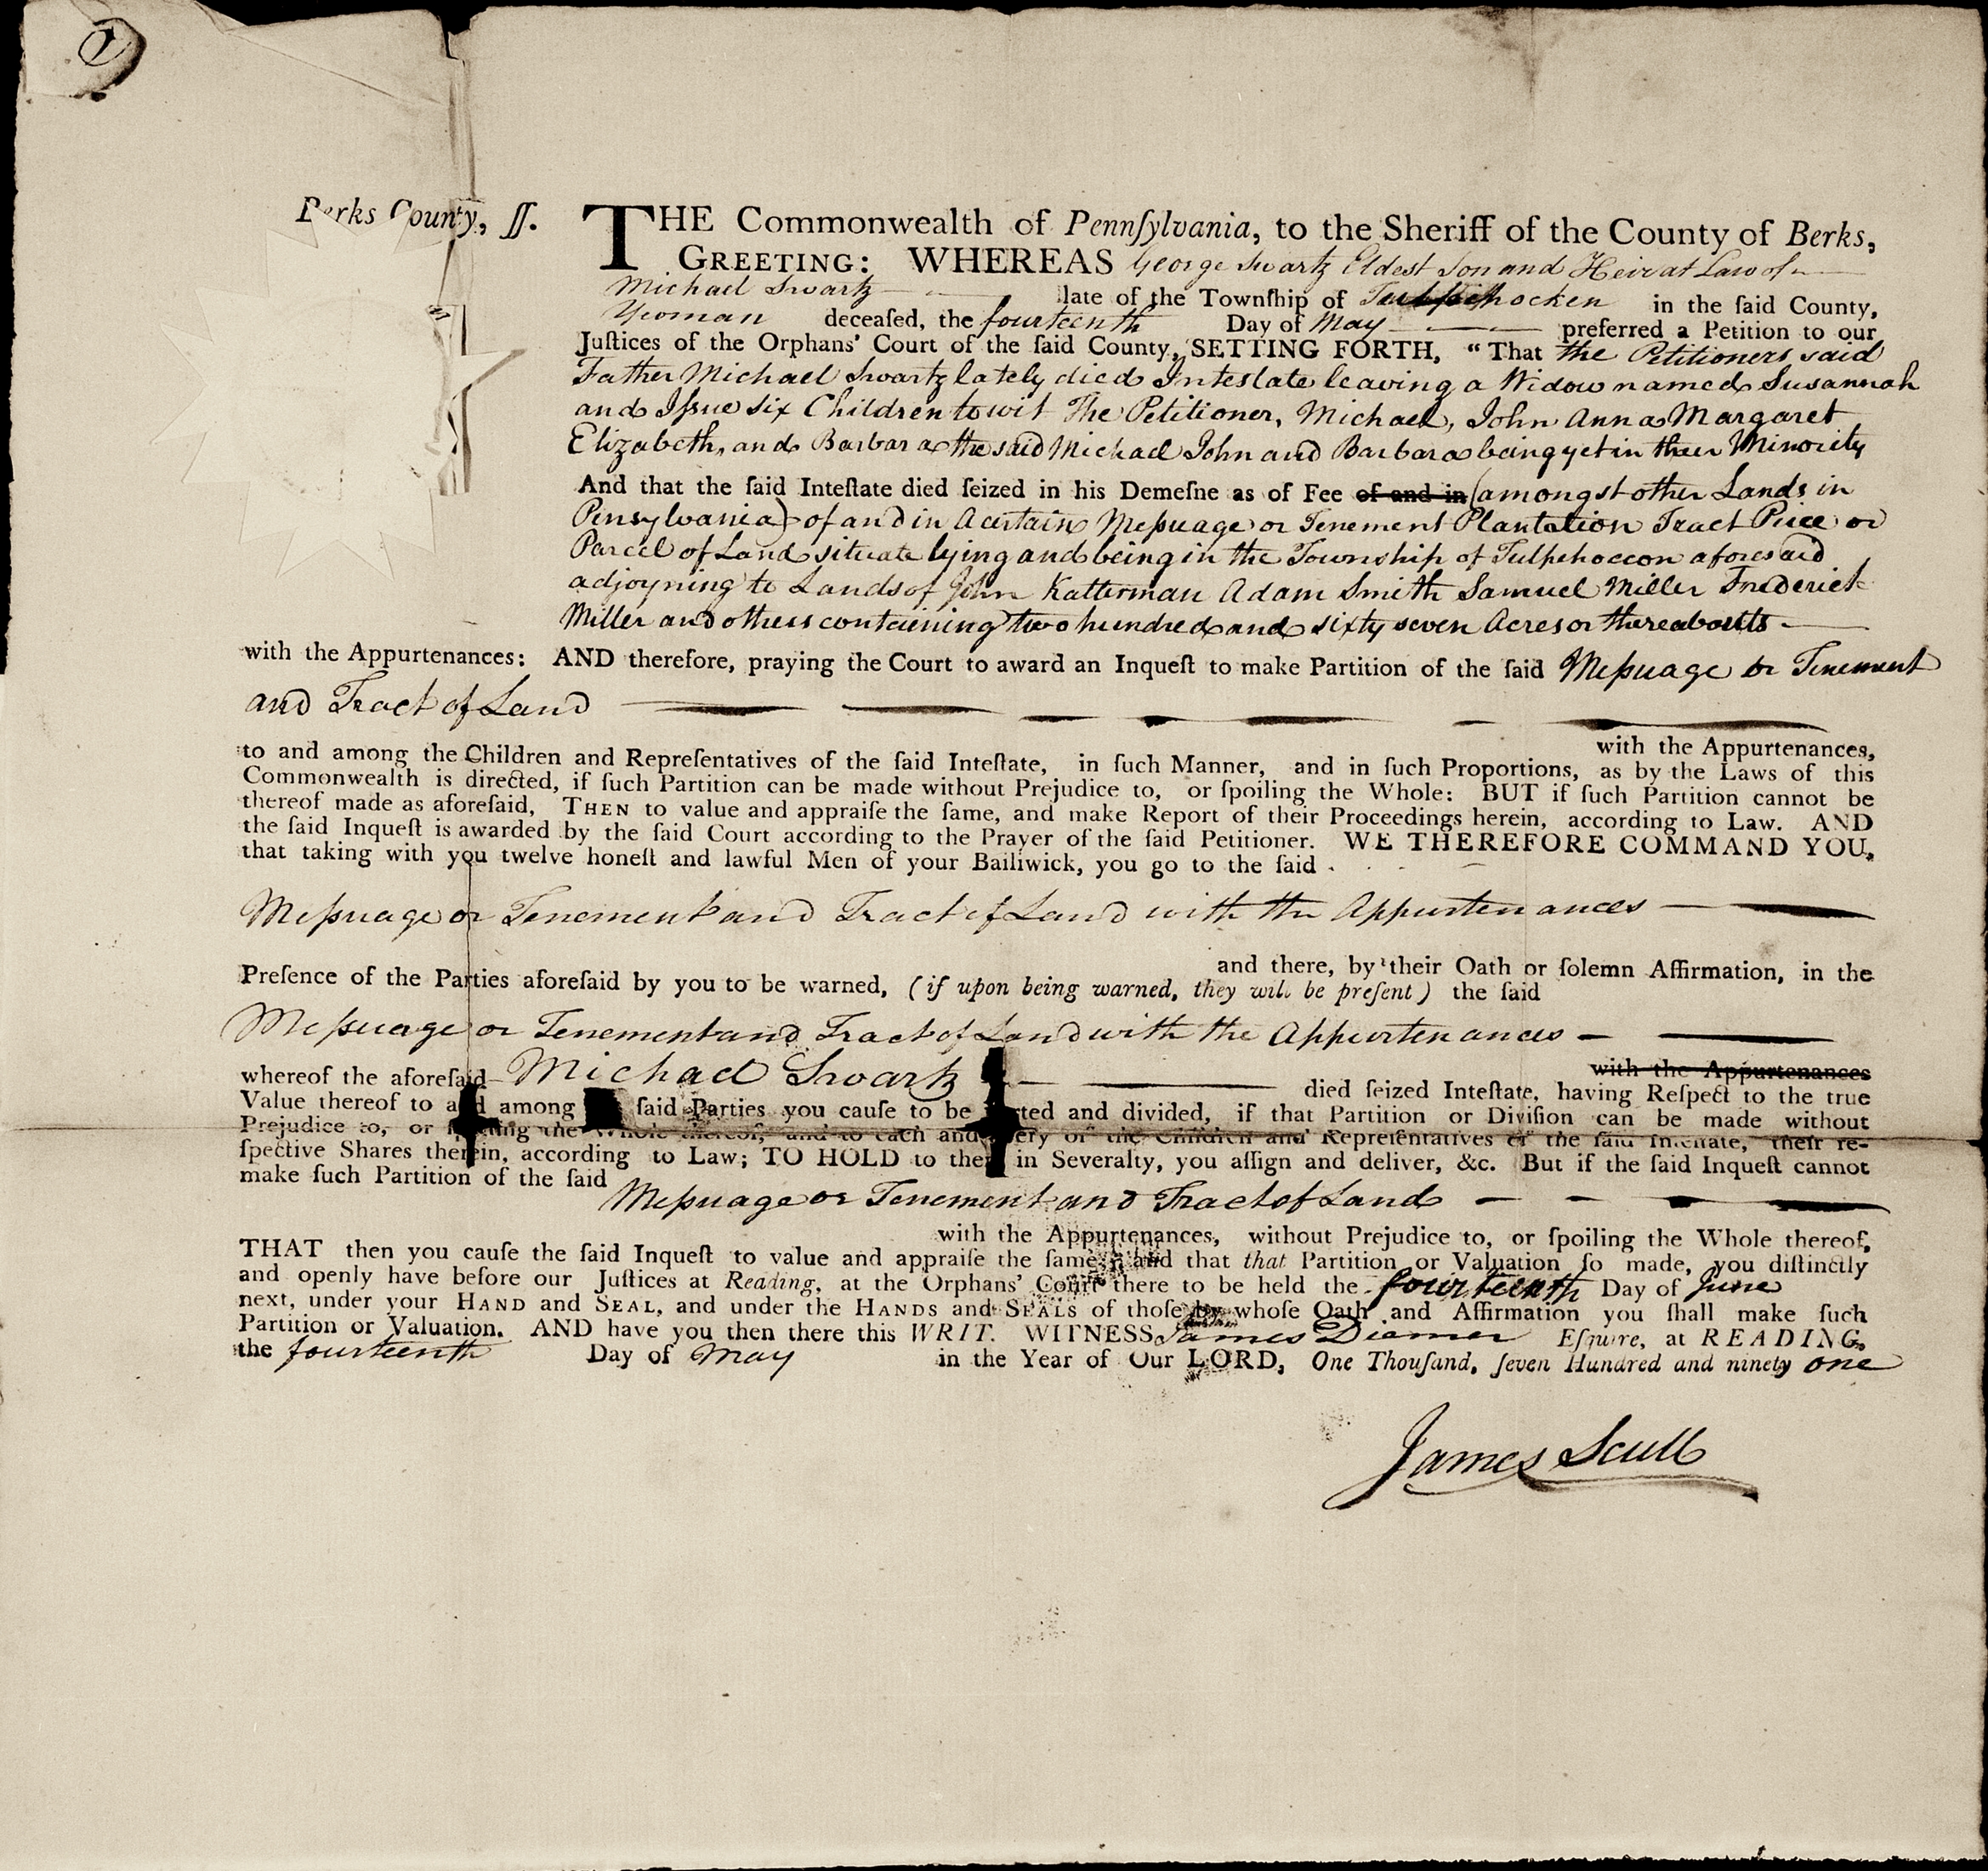 Berks County, ſſ.
THE Commonwealth of Pennſylvania, to the Sheriff of the County of Berks,
GREETING: WHEREAS George Swartz Eldest Son and Heir at Law of
Michael Swartz late of the Townſhip of Tulpehocken in the ſaid County,
Yeoman deceaſed, the fourteenth Day of May preferred a Petition to our
Juſtices of the Orphans' Court of the ſaid County, SETTING FORTH, "That the Petitioners said
Father Michael Swartz lately died Intestate leaving a Widow named Susannah
and Iſsue six Children to wit The Petitioner, Michael, John Anna Margaret
Elizabeth, and Barbara the said Michael John and Barbara being yet in their Minority
And that the ſaid Inteſtate died ſeized in his Demeſne as of Fee of and in (amongst other Lands in
Pensylvania) of and in a certain Meſsuage or Tenement Plantation Tract Peice or
Parcel of Land situate lying and being in the Township of Tulpehoccon aforesaid
adjoyning to Lands of John Katterman Adam Smith Samuel Miller Frederick
Miller and others containing two hundred and sixty seven Acres or thereabouts
with the Appurtenances: AND therefore, praying the Court to award an Inqueſt to make Partition of the ſaid Meſsuage or Tenement
and Tract of Land
with the Appurtenances,
to and among the Children and Repreſentatives of the ſaid Inteſtate, in ſuch Manner, and in ſuch Proportions, as by the Laws of this
Commonwealth is directed, if ſuch Partition can be made without Prejudice to, or ſpoiling the Whole: BUT if ſuch Partition cannot be
thereof made as aforeſaid, THEN to value and appraiſe the ſame, and make Report of their Proceedings herein, according to Law. AND
the ſaid Inqueſt is awarded by the ſaid Court according to the Prayer of the ſaid Petitioner. WE THEREFORE COMMAND YOU,
that taking with you twelve honeſt and lawful Men of your Bailiwick, you go to the ſaid
Meſsuage or Tenement and Tract of Land with the Appurtenances
and there, by their Oath or ſolemn Affirmation, in the
Preſence of the Parties aforeſaid by you to be warned, (if upon being warned, they will be preſent) the ſaid
Meſsuage or Tenement and Tract of Land with the Appurtenances
with the Appurtenances
whereof the aforeſaid Michael Swartz died ſeized Inteſtate, having Reſpect to the true
Value thereof to and among ſaid Parties you cauſe to be parted and divided, if that Partition or Diviſion can be made without
Prejudice to, or ſpoiling the Whole thereof, and to each and every of the Children and Repreſentatives of the ſaid Inteſtate, their re-
ſpective Shares therein, according to Law; TO HOLD to them in Severalty, you aſſign and deliver, &c. But if the ſaid Inqueſt cannot
make ſuch Partition of the ſaid Meſsuage or Tenement and Tract of Land
with the Appurtenances, without Prejudice to, or ſpoiling the Whole thereof,
THAT then you cauſe the ſaid Inqueſt to value and appraiſe the ſame, and that that Partition or Valuation ſo made, you diſtinctly
and openly have before our Juſtices at Reading, at the Orphans' Court there to be held the fourteenth Day of June
next, under your HAND and SEAL, and under the HANDS and SEALS of thoſe by whoſe Oath and Affirmation you ſhall make ſuch
Partition or Valuation. AND have you then there this WRIT. WITNESS James Diemer Eſquire, at READING,
the fourteenth Day of May in the Year of Our LORD, One Thouſand, ſeven Hundred and ninety one
James Scull